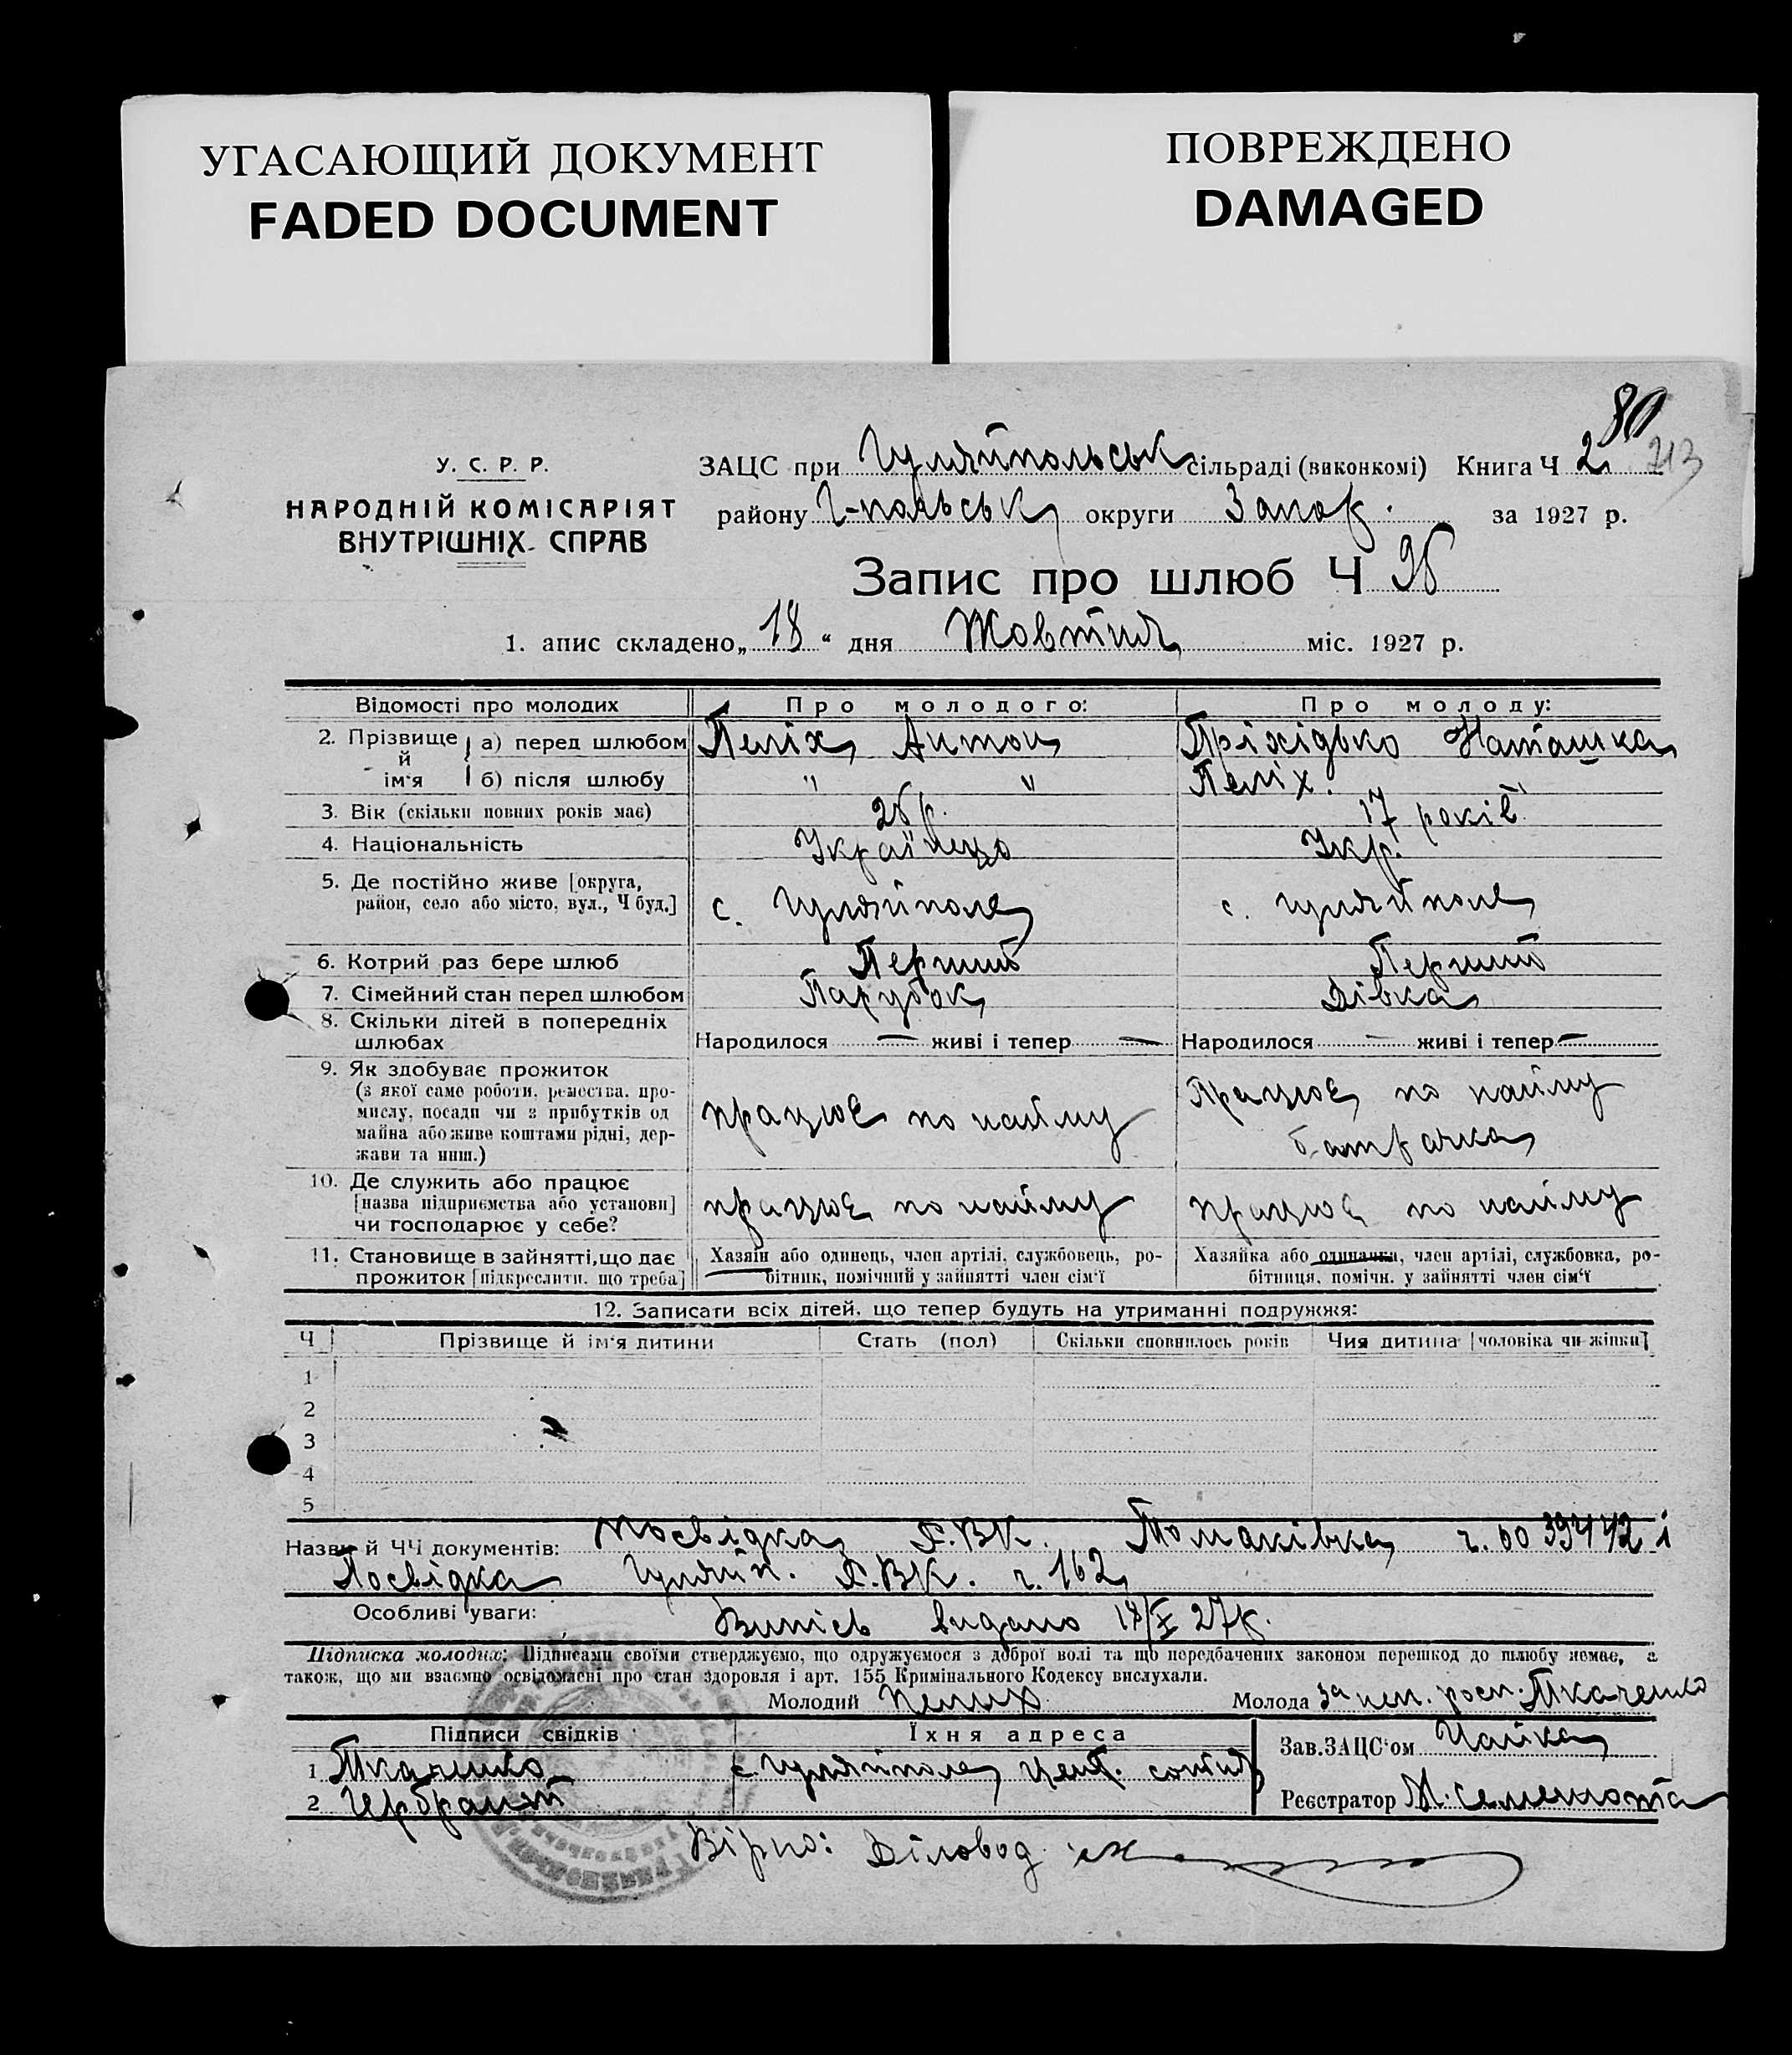 УГАСАЮЩИЙ ДОКУМЕНТ
FADED DOCUMENT
ПОВРЕЖДЕНО
DAMAGED
80
213
У. С. Р. Р.
НАРОДНІЙ КОМІСАРІЯТ
ВНУТРІШНІХ СПРАВ
ЗАЦС при Гуляйпольськ сільраді (виконкомі) Книга Ч 2
району Г-польськ округи Запор. за 1927 р.
Запис про шлюб Ч
1. апис складено „18“ дня Жовтня міс. 1927 р.
Відомості про молодих Про молодого: Про молоду:
2. Прізвище й ім'я а) перед шлюбом Пеліх Антон Наташка
б) після шлюбу " " Пеліх.
3. Вік (скільки повних років має) р. 17 років
4. Національність Українець Укр.
5. Де постійно живе [округа, с. Гуляйполе с. Гуляйполе
район, село або місто, вул., Ч буд.]
6. Котрий раз бере шлюб Перший Перший
7. Сімейний стан перед шлюбом Парубок Дівка
8. Скільки дітей в попередніх
шлюбах Народилося — живі і тепер — Народилося — живі і тепер —
9. Як здобуває прожиток
(з якої само роботи, ремества, про- працює по найму Працює по найму
мислу, посади чи з прибутків од батрачка
майна або живе коштами рідні, дер-
жави та инш.)
10. Де служить або працює
[назва підприємства або установи] працює по найму працює по найму
чи господарює у себе?
11. Становище в зайнятті, що дає Хазяїн або одинець, член артілі, службовець, ро- Хазяйка або одиначка, член артілі, службовка, ро-
прожиток [підкреслити, що треба] бітник, помічний у зайнятті член сім'ї бітниця, помічн. у зайнятті член сім'ї
12. Записати всіх дітей, що тепер будуть на утриманні подружжя:
Ч Прізвище й ім'я дитини Стать (пол) Скільки сповнилось років Чия дитина [чоловіка чи жінки]
1
2
3
4
5
Назви й ЧЧ документів: Посвідка Р.В.К. Томаківка ч. 00 39442 і
Посвідка Гуляйп. Р.В.К. ч. 162
Особливі уваги: Випісь видано 18/X 27р.
Підписка молодих: Підписами своїми стверджуємо, що одружуємося з доброї волі та що передбачених законом перешкод до шлюбу немає, а
також, що ми взаємно освідомлені про стан здоровля і арт. 155 Кримінального Кодексу вислухали.
Молодий Пелих Молода за неп. росп. Ткаченко
Підписи свідків Їхня адреса Зав. ЗАЦС'ом Чайка
1 Ткаченко с. Гуляйполе цент.
2 Реєстратор
Вірно: Діловод